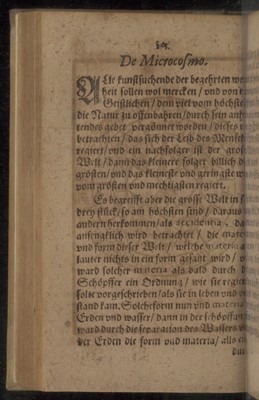 De Microcosmo.
Alle kunstsuchende der begehrten
heit sollen wol mercken / und von
Geistlichen / dem viel vom höchste
die Natur zu offenbahren / durch sein
tendes gebet vergünnet worden / dieses
betrachten / das sich der Leib des Mensch
regiert / und ein nachfolger ist der gros
Welt / dann das kleinere folger billich d
grösten / und das kleineste und geringste
vom grösten und mechtigsten regiert.
Es begreifft aber die grosse Welt in
drey stück / so am höchsten sind / daraus
andern herkommen / als
anfenglich wird betrachtet / die mate
und form dieser Welt / welche materia
lauter nichts in ein form gefast wird /
ward solcher materia als bald durch d
Schöpffer ein Ordnung / wie sie regier
solte vorgeschrieben / als sie in leben und
stand kam. Solche form nun und materia
Erden und wasser / dann in der schöpffun
ward durch die separation des Wassers
der Erden die form und materia / alls